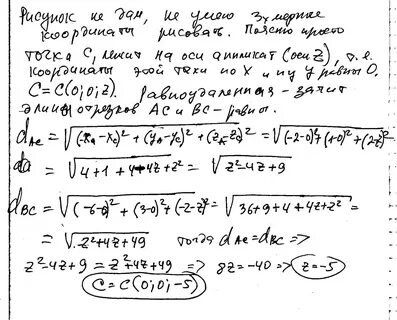 Рисунок не дам, не умею 3х мерные
координаты рисовать. Поясню просто
точка C, лежит на оси аппликат (оси Z), т.е.
координаты этой точки по X и по Y равны 0,
C = C(0; 0; z). Равноудаленная - значит
длины отрезков AC и BC - равны.
d_AC = √((x_A - x_C)² + (y_A - y_C)² + (z_A - z_C)²) = √((-2-0)² + (1-0)² + (2-z)²)
= √(4 + 1 + 4 - 4z + z²) = √(z² - 4z + 9)
d_BC = √((-6-0)² + (3-0)² + (-2-z)²) = √(36 + 9 + 4 + 4z + z²) =
= √(z² + 4z + 49) тогда d_AC = d_BC =>
z² - 4z + 9 = z² + 4z + 49 => 8z = -40 => z = -5
C = C(0; 0; -5)